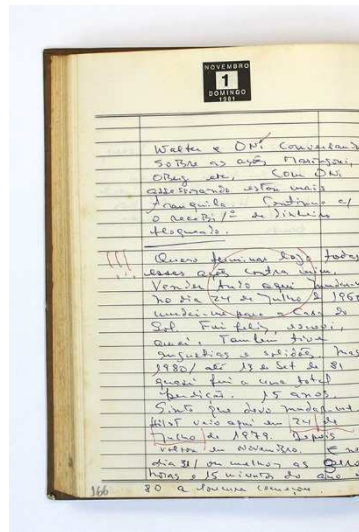 NOVEMBRO
1
DOMINGO
1981
Walter e ONi conversando
sobre as ações
etc, com ONi
assessorando estou mais
tranquila. Continuo c/
o de dinheiro
bloqueado.
!!! Quero terminar logo todas
essas ações contra mim.
Vender tudo aqui
no dia 24 de Julho de
mudei-me para a Casa do
Sol. Fui feliz, escrevi,
amei. Também tive
angustias e solidões, mas
1980/ até 13 de Set de 81
quasi fui a uma total
perdição. 15 anos.
Sinto que devo
veio aqui em 24 de
Julho de 1979. Depois
voltou em Novembro. E no
dia 31/ ou melhor as
horas e 15 minutos do ano
80 a loucura começou.
166